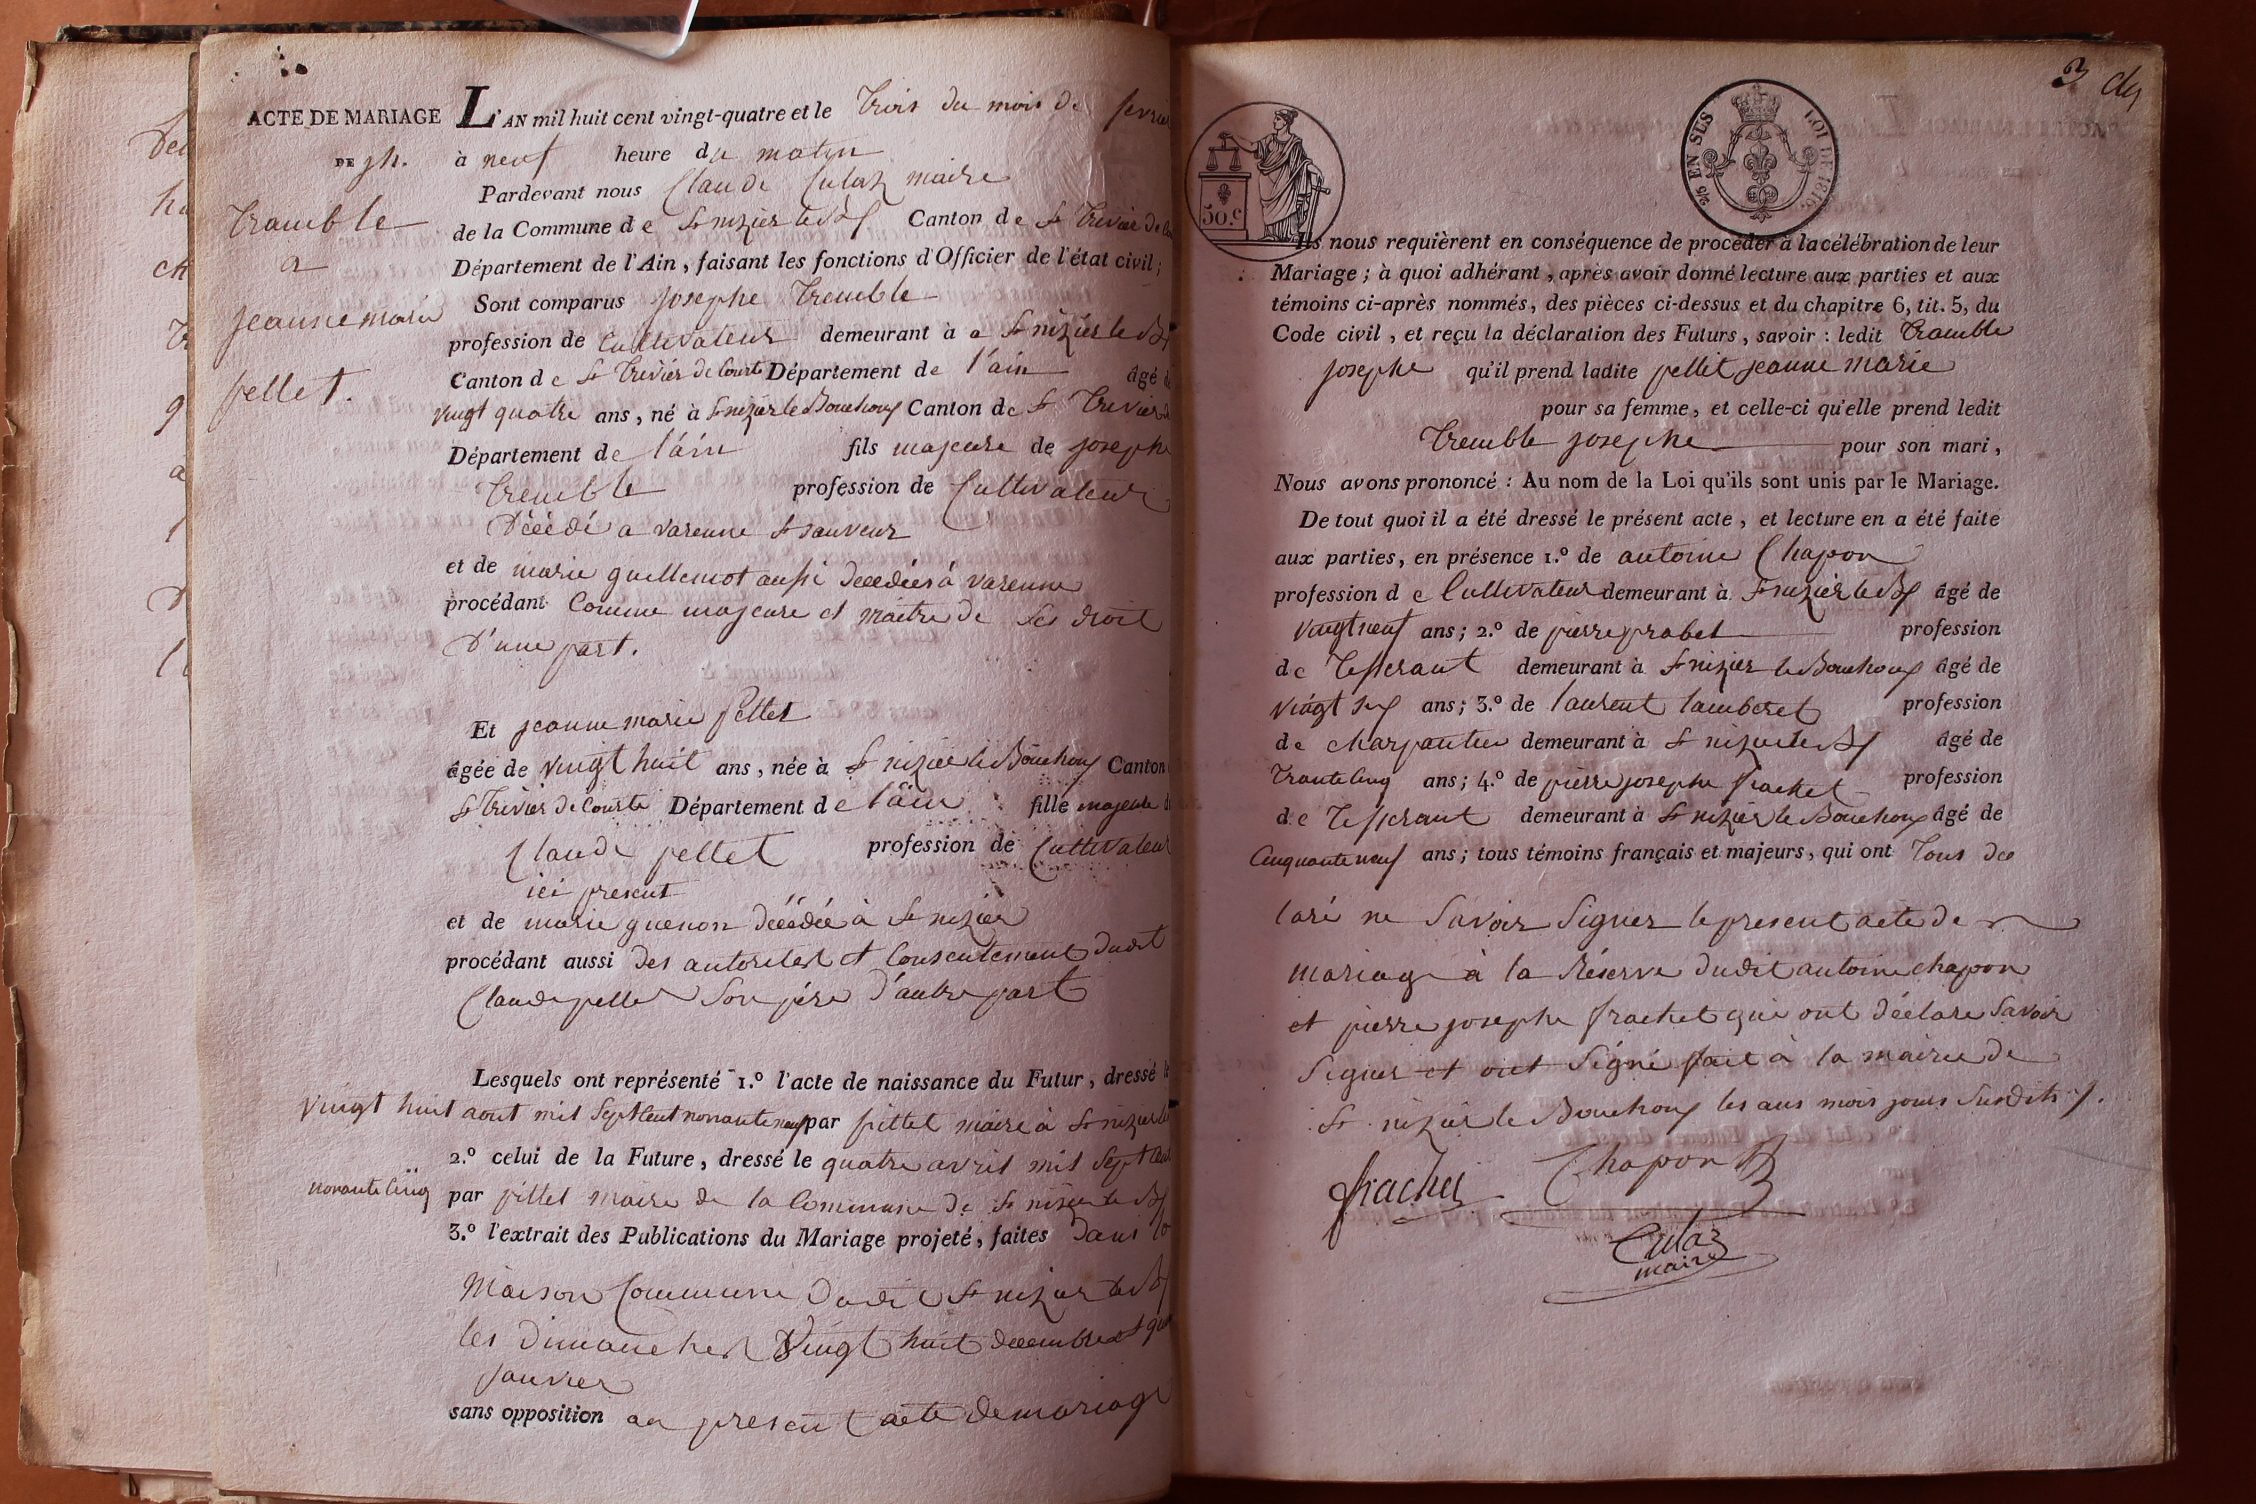 ACTE DE MARIAGE
DE jh.
tramble
a
jeanne marie
pellet.
L'AN mil huit cent vingt-quatre et le trois du mois de fevrier
à neuf heure du matin
Pardevant nous Claude Culaz maire
de la Commune de St nizier le Bx Canton de St trivier de
Département de l'Ain, faisant les fonctions d'Officier de l'état civil;
Sont comparus josephe tremble
profession de Cultivateur demeurant à a St nizier le Bx
Canton de St trivier de Courte Département de l'ain âgé de
vingt quatre ans, né à St nizier le Bouchoux Canton de St trivier
Département de l'ain fils majeure de josephe
tremble profession de Cultivateur
décédé a varenne St sauveur
et de marie guillemot aussi decedées à varenne
procédant Comme majeure et maitre de Ses droit
d'une part.
Et jeanne marie pellet
âgée de vingt huit ans, née à St nizier le Bouchoux Canton
St trivier de Courte Département de l'ain fille majeure de
Claude pellet profession de Cultivateur
ici present
et de marie guenon décédée à St nizier
procédant aussi des autorités et Consentement dudit
Claude pellet Son père d'autre part
Lesquels ont représenté 1.° l'acte de naissance du Futur, dressé le
vingt huit aout mil Sept Cent nonante neuf par pittet maire à St nizier le
2.° celui de la Future, dressé le quatre avril mil Sept Cent
nonante Cinq par pittet maire de la Commune de St nizier le Bx
3.° l'extrait des Publications du Mariage projeté, faites dans la
maison Commune dudit St nizier le Bx
les dimanches vingt huit decembre et
janvier
sans opposition au present acte de mariage
3
LOI DE 1816.
50.c
Ils nous requièrent en conséquence de procéder à la célébration de leur
Mariage; à quoi adhérant, après avoir donné lecture aux parties et aux
témoins ci-après nommés, des pièces ci-dessus et du chapitre 6, tit. 5, du
Code civil, et reçu la déclaration des Futurs, savoir: ledit tramble
josephe qu'il prend ladite pellit jeanne marie
pour sa femme, et celle-ci qu'elle prend ledit
tremble josephe pour son mari,
Nous avons prononcé: Au nom de la Loi qu'ils sont unis par le Mariage.
De tout quoi il a été dressé le présent acte, et lecture en a été faite
aux parties, en présence 1.° de antoine Chapon
profession de Cultivateur demeurant à St nizier le Bx âgé de
vingt neuf ans; 2.° de pierre profession
de tisserant demeurant à St nizier le Bouchoux âgé de
vingt ans; 3.° de laurent lamberet profession
de charpentier demeurant à St nizier le Bx âgé de
trante Cinq ans; 4.° de pierre josephe frachet profession
de tisserant demeurant à St nizier le Bouchoux âgé de
Cinquante neuf ans; tous témoins français et majeurs, qui ont tous dec
laré ne Savoir Signer le present acte de
mariage à la Réserve dudit antoine chapon
et pierre josephe frachet qui ont déclare Savoir
Signer et ont Signé fait à la mairie de
St nizier le Bouchoux les ans mois jours Susdits
frachet Chapon
Culaz
maire